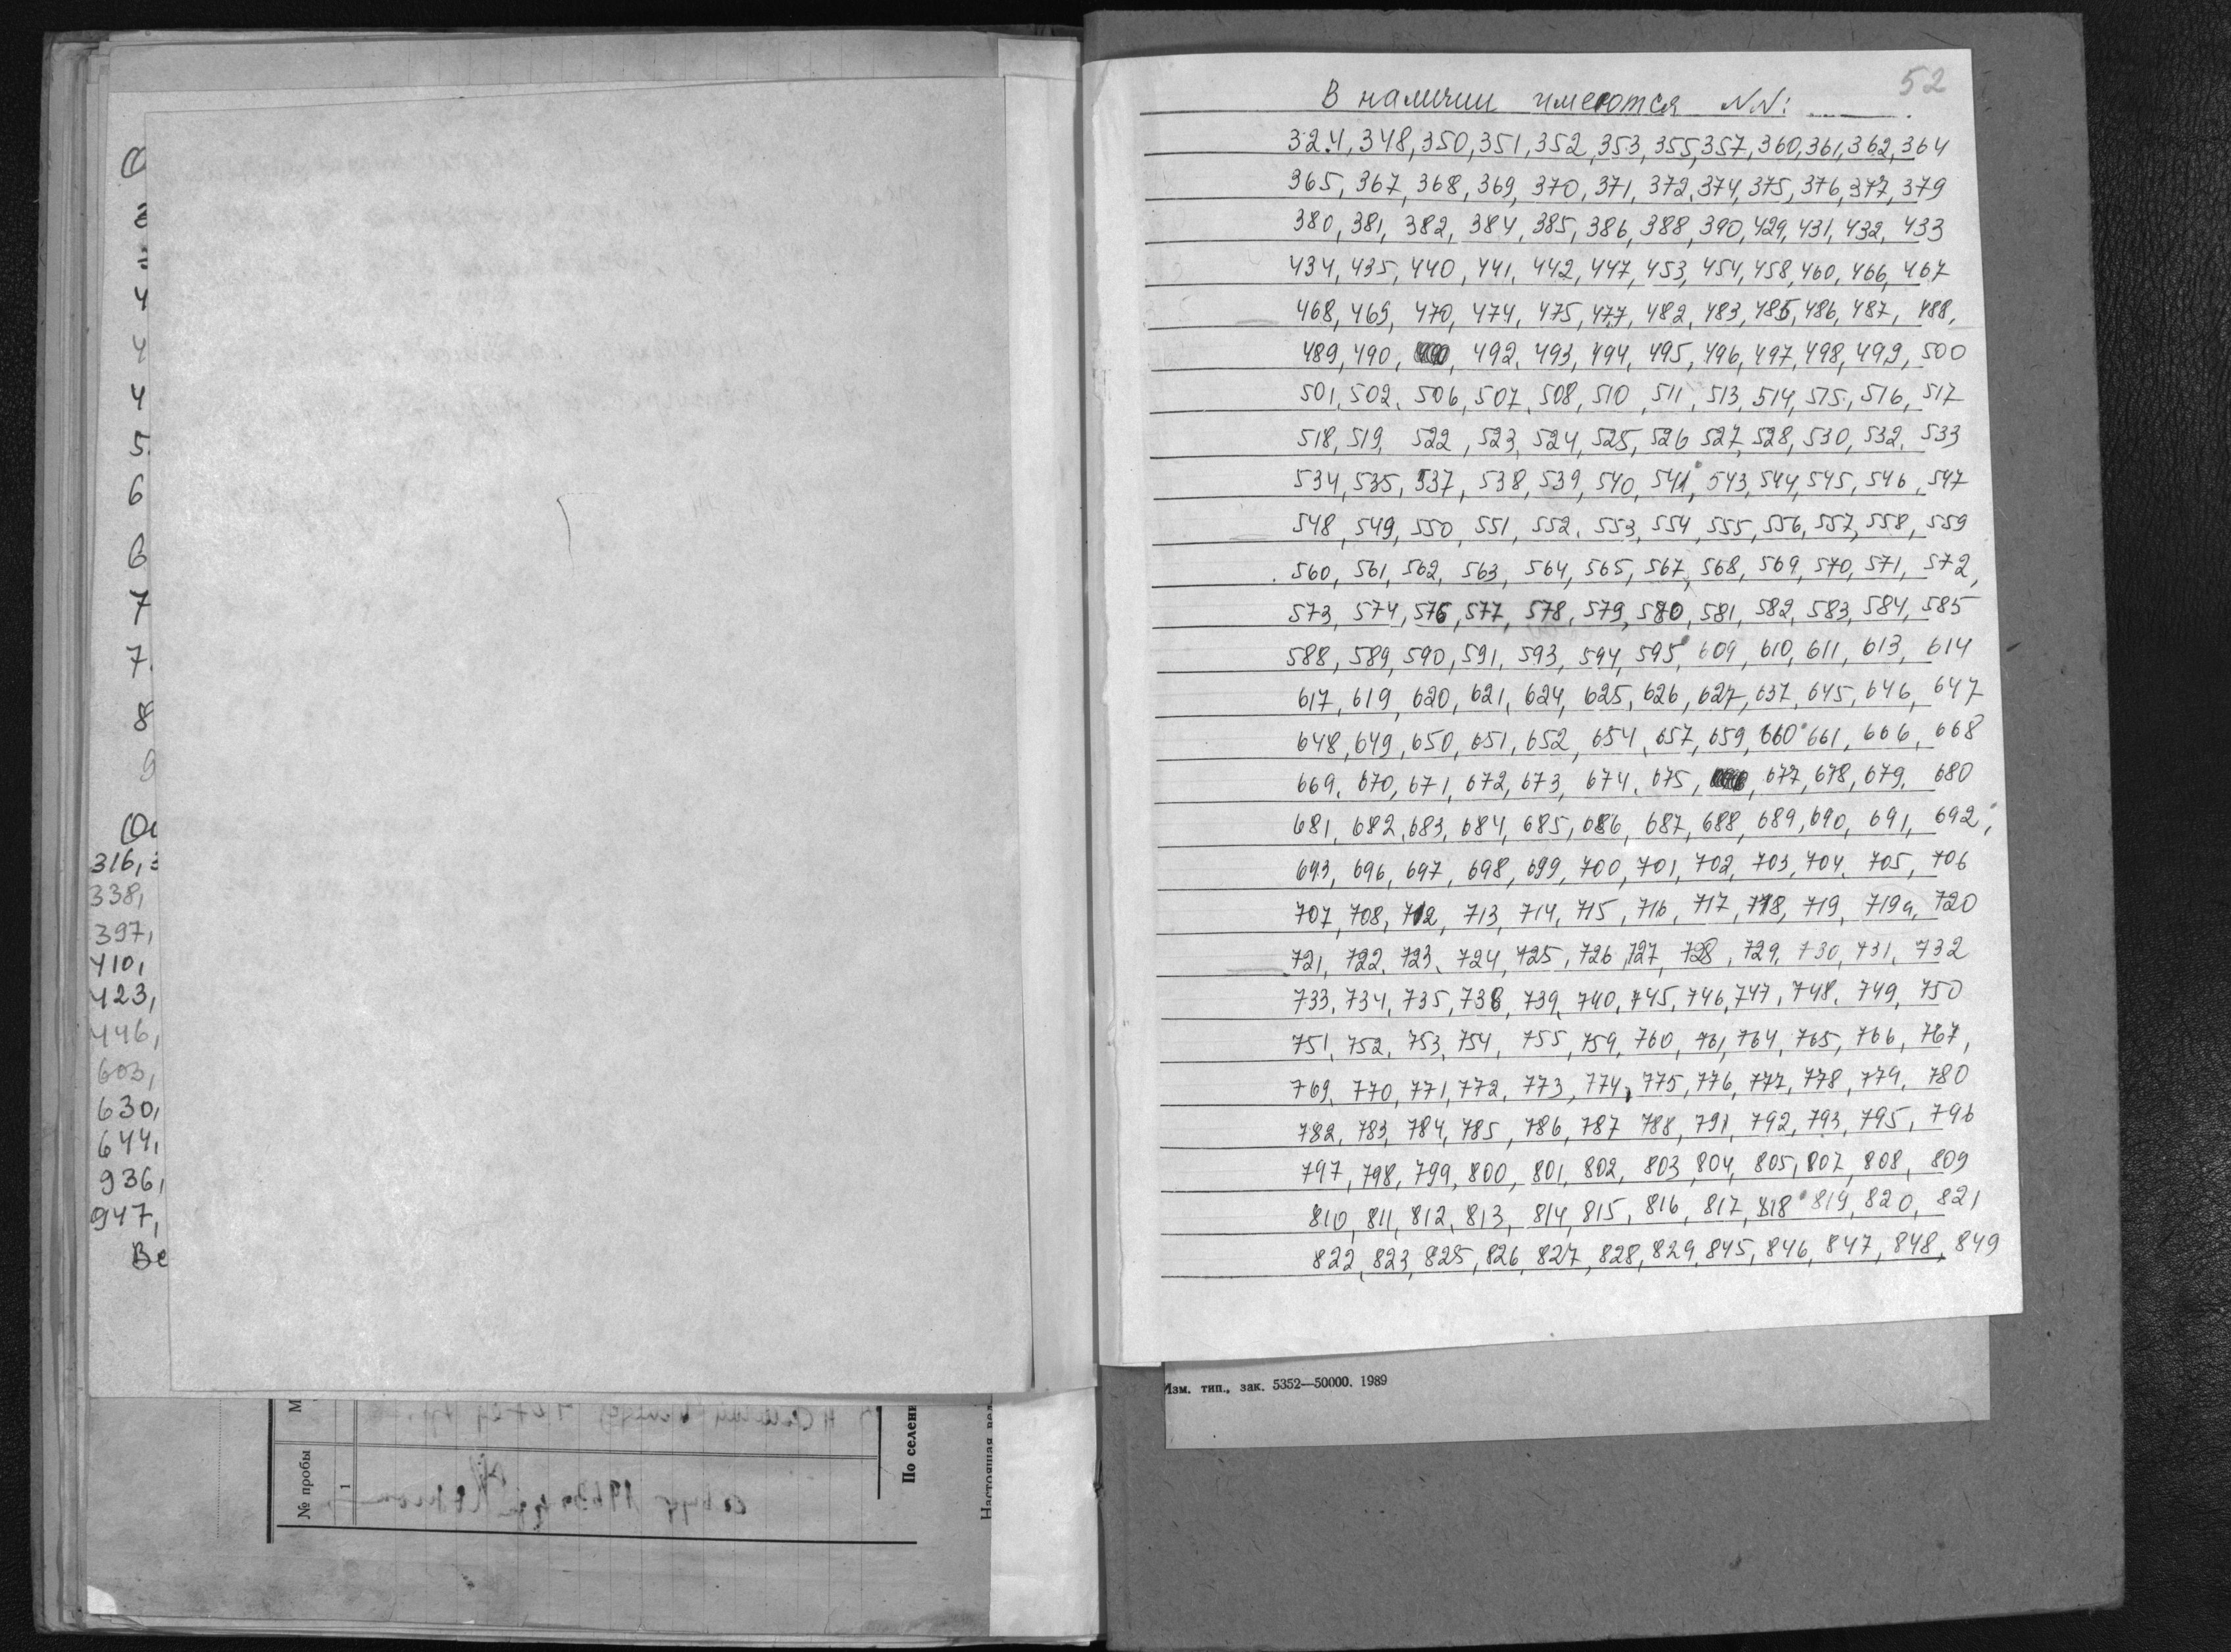 316,
338,
397,
410,
423,
446,
603,
630,
644,
936,
947,
№ пробы
1
По селени
52
В наличии имеются NN:
324, 348, 350, 351, 352, 353, 355, 357, 360, 361, 362, 364
365, 367, 368, 369, 370, 371, 372, 374, 375, 376, 377, 379
380, 381, 382, 384, 385, 386, 388, 390, 429, 431, 432, 433
434, 435, 440, 441, 442, 447, 453, 454, 458, 460, 466, 467
468, 469, 470, 474, 475, 477, 482, 483, 485, 486, 487, 488,
489, 490, 492, 493, 494, 495, 496, 497, 498, 499, 500
501, 502, 506, 507, 508, 510, 511, 513, 514, 515, 516, 517
518, 519, 522, 523, 524, 525, 526 527, 528, 530, 532, 533
534, 535, 537, 538, 539, 540, 541, 543, 544, 545, 546, 547
548, 549, 550, 551, 552, 553, 554, 555, 556, 557, 558, 559
560, 561, 562, 563, 564, 565, 567, 568, 569, 570, 571, 572,
573, 574, 576, 577, 578, 579, 580, 581, 582, 583, 584, 585
588, 589, 590, 591, 593, 594, 595, 609, 610, 611, 613, 614
617, 619, 620, 621, 624, 625, 626, 627, 637, 645, 646, 647
648, 649, 650, 651, 652, 654, 657, 659, 660, 661, 666, 668
669, 670, 671, 672, 673, 674, 675, 677, 678, 679, 680
681, 682, 683, 684, 685, 686, 687, 688, 689, 690, 691, 692,
693, 696, 697, 698, 699, 700, 701, 702, 703, 704, 705, 706
707, 708, 712, 713, 714, 715, 716, 717, 718, 719, 719а, 720
721, 722, 723, 724, 725, 726, 727, 728, 729, 730, 731, 732
733, 734, 735, 738, 739, 740, 745, 746, 747, 748, 749, 750
751, 752, 753, 754, 755, 759, 760, 761, 764, 765, 766, 767,
769, 770, 771, 772, 773, 774, 775, 776, 777, 778, 779, 780
782, 783, 784, 785, 786, 787 788, 791, 792, 793, 795, 796
797, 798, 799, 800, 801, 802, 803, 804, 805, 807, 808, 809
810, 811, 812, 813, 814, 815, 816, 817, 818, 819, 820, 821
822, 823, 825, 826, 827, 828, 829, 845, 846, 847, 848, 849
Изм. тип., зак. 5352—50000. 1989